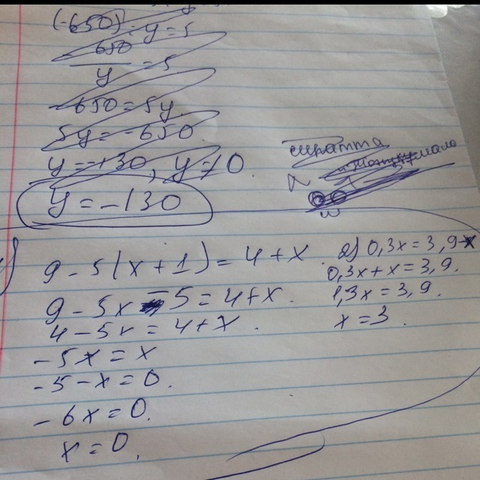 (-650) : y = 5
650
y
= 5
-650 = 5y
5y = -650
y = -130, y ≠ 0
y = -130
9 - 5(x + 1) = 4 + x
9 - 5x - 5 = 4 + x.
4 - 5x = 4 + x.
-5x = x
-5 - x = 0.
-6x = 0.
x = 0.
2) 0,3x = 3,9 - x
0,3x + x = 3,9.
1,3x = 3,9.
x = 3.